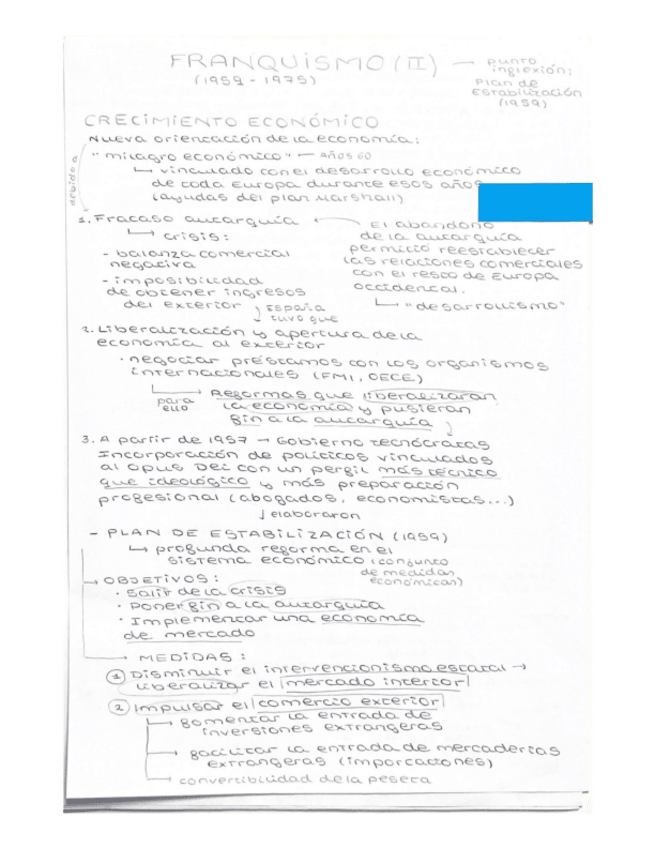 FRANQUISMO (II) → punto
(1959 - 1975)
inglexión:
Plan de
Estabilización
(1959)
CRECIMIENTO ECONÓMICO
Nueva orientación de la economía:
"milagro económico" — AÑOS 60
↳ vinculado con el desarrollo económico
de toda Europa durante esos años
(ayudas del plan Marshall)
debido a
1. Fracaso autarquía
↳ crisis:
- balanza comercial
negativa
- imposibilidad
de obtener ingresos
del exterior
↓ ESPAÑA
tuvo que
El abandono
de la autarquía
permitió reestablecer
las relaciones comerciales
con el resto de Europa
occidental.
↳ "desarrollismo"
2. Liberalización y apertura de la
economía al exterior
· negociar préstamos con los organismos
internacionales (FMI, OECE)
para
ello
Reformas que liberalizaran
la economía y pusieran
fin a la autarquía
3. A partir de 1957 → Gobierno tecnócratas
Incorporación de políticos vinculados
al Opus Dei con un perfil más técnico
que ideológico y más preparación
profesional (abogados, economistas...)
↓ elaboraron
- PLAN DE ESTABILIZACIÓN (1959)
↳ profunda reforma en el
sistema económico (conjunto
de medidas
económicas)
→ OBJETIVOS:
· Salir de la crisis
· Poner fin a la autarquía
· Implementar una economía
de mercado
MEDIDAS:
① Disminuir el intervencionismo estatal →
liberalizar el mercado interior
② Impulsar el comercio exterior
→ fomentar la entrada de
inversiones extrangeras
→ facilitar la entrada de mercaderias
extrangeras (importaciones)
→ convertibilidad de la peseta